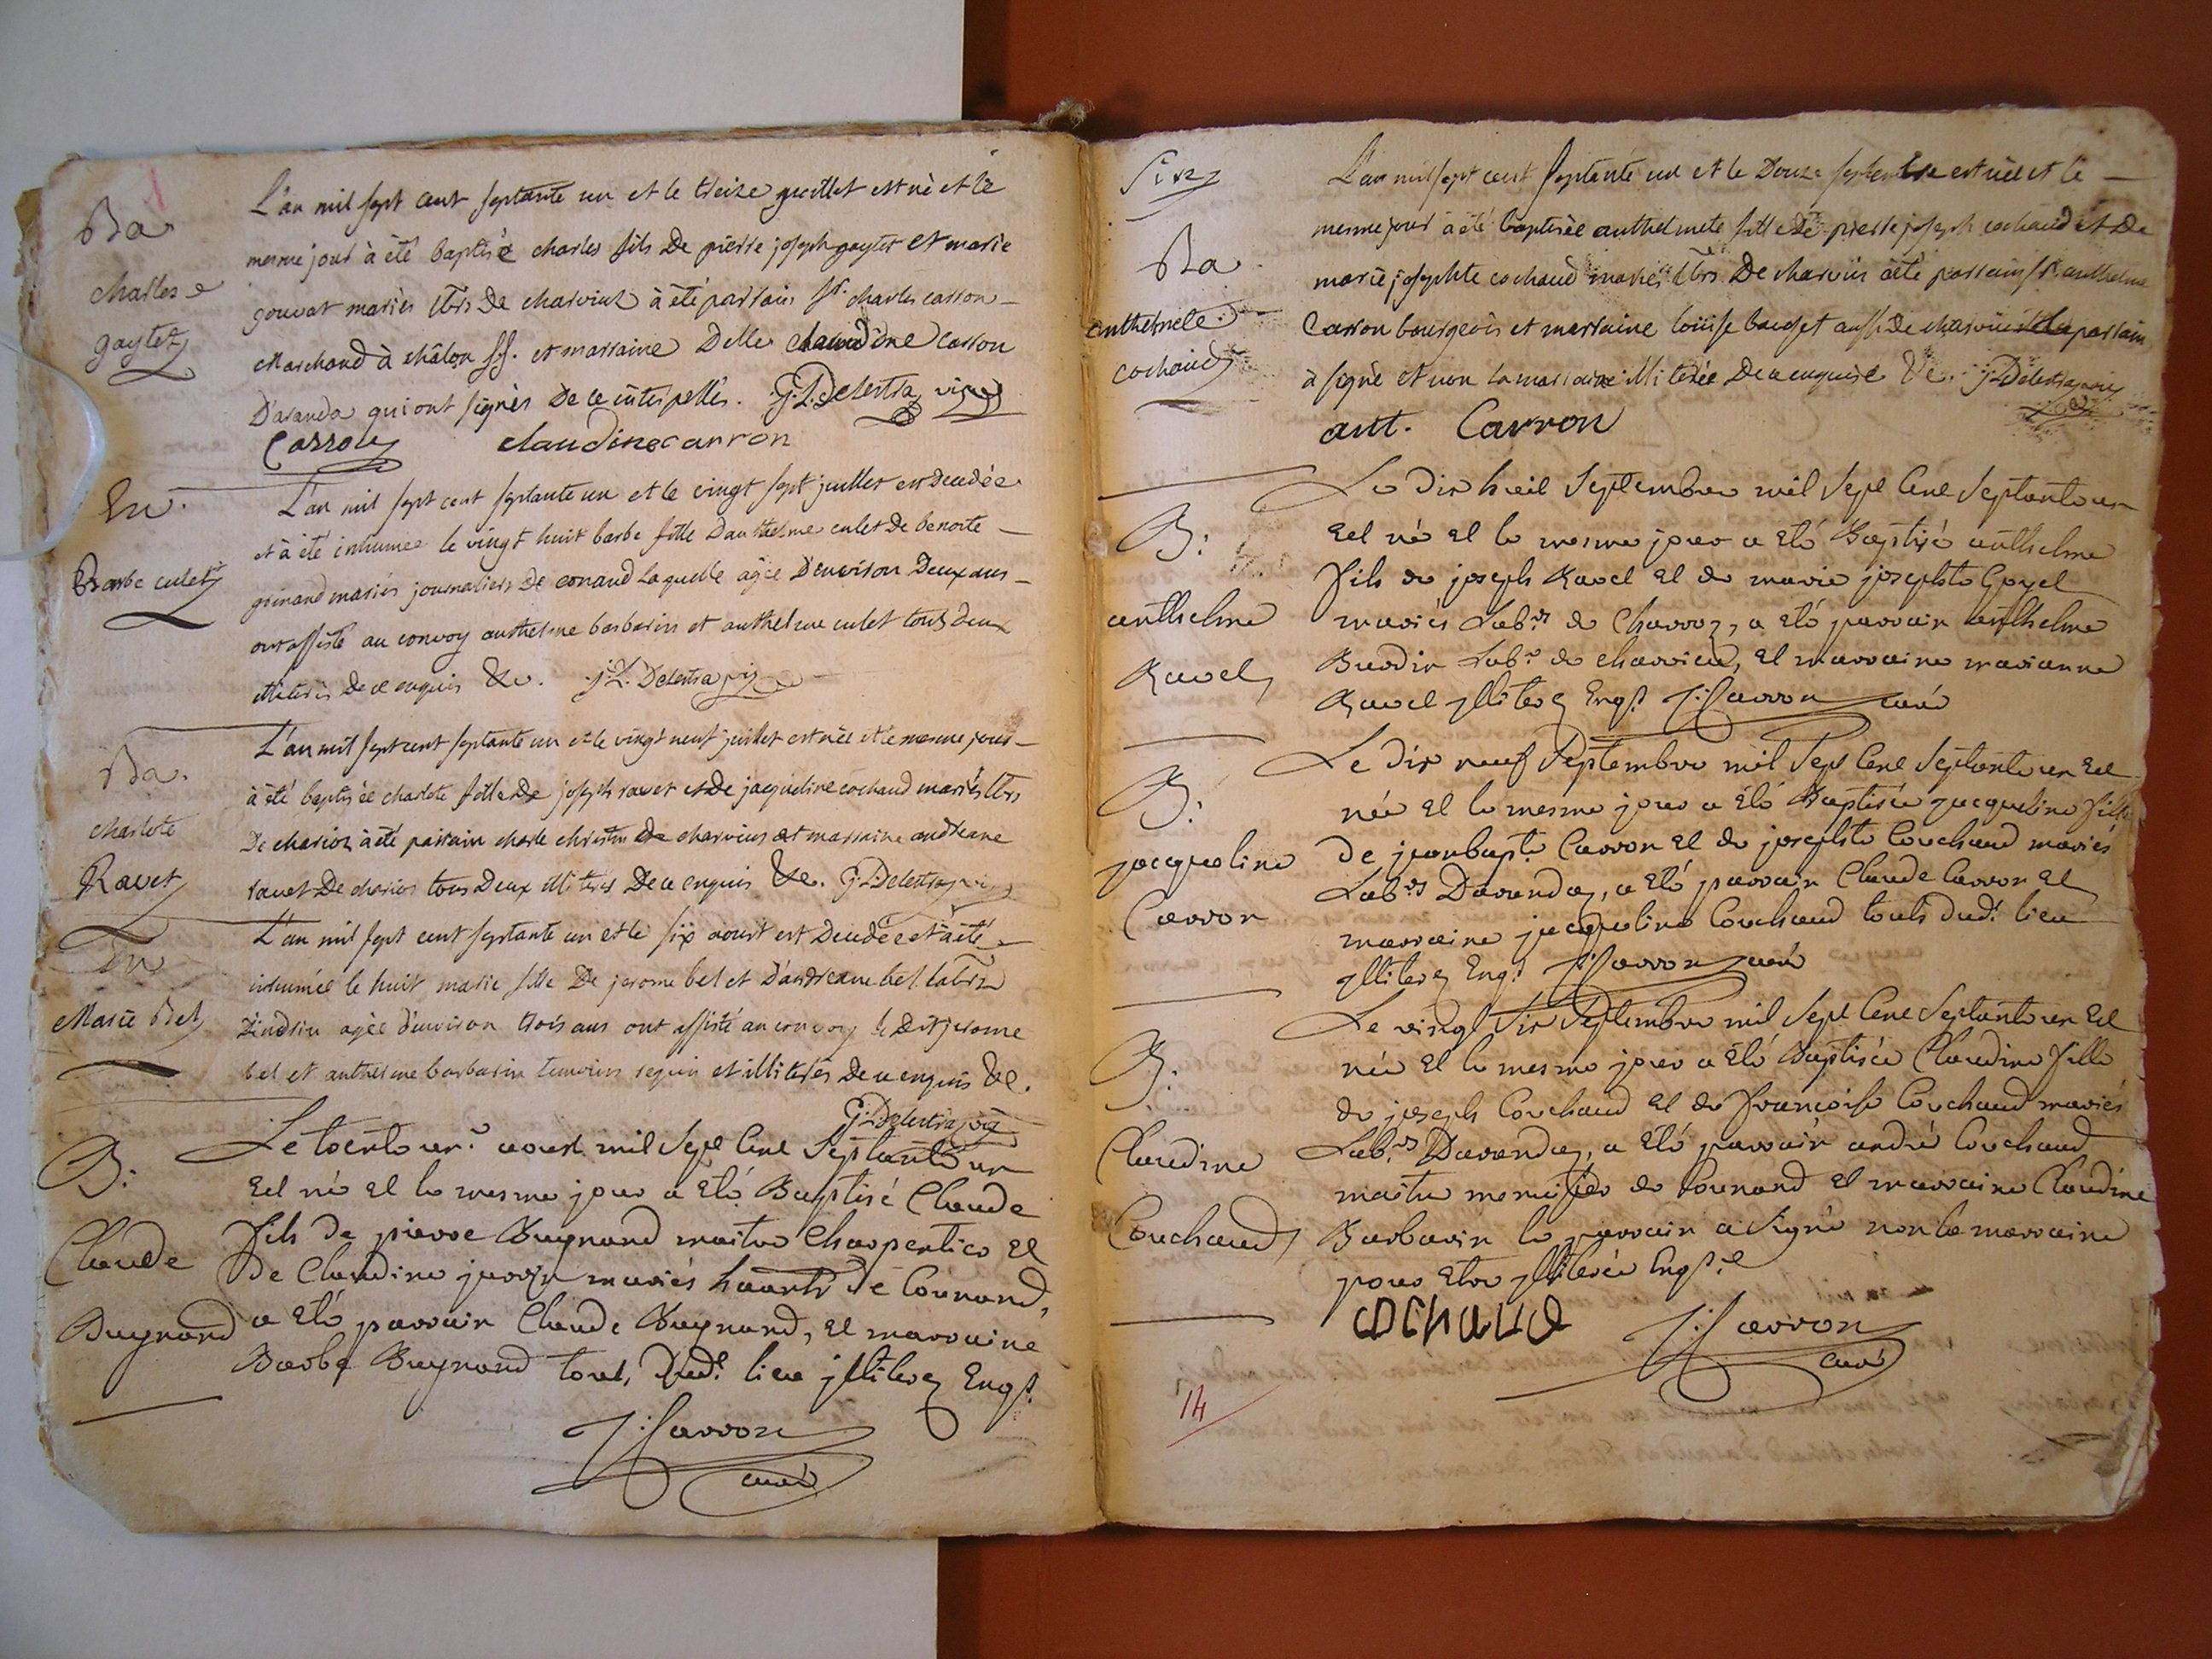 Ba
charles
gaytet
L'an mil sept cent septante un et le treize juillet est né et le
mesme jour à été baptisé charles fils De pierre joseph gaytet et marie
gouvat mariés lbrs De charvieux à été parrain Sr. charles carron
Marchand à châlon et marraine Delle claudine carron
D'aranda qui ont signés De ce interpellés. J.L. Delestra vic
Carron claudine carron
En.
Barbe culet
L'an mil sept cent septante un et le vingt sept juillet est Decedée
et à été inhumée le vingt huit barbe fille D'anthelme culet De benoite
guinand mariés journaliers De conand Laquelle agée D'environ Deux ans
ont assisté au convoy anthelme barbarin et anthelme culet tous deux
illiterés De ce enquis &c. J.L. Delestra vic
Ba.
charlote
Ravet
L'an mil sept cent septante un et le vingt neuf juillet est née et le mesme jour
à été baptisée charlote fille De joseph ravet et De jacqueline cochaud mariés lbrs
De charioz à été parrain charle christin De charvieux et marraine andreane
ravet De charioz tous Deux illiterés De ce enquis &c. J.L. Delestra vic
En
Marie Bel
L'an mil sept cent septante un et le six aoust est Decedée et à été
inhumée le huit marie fille De jerome bel et D'andreane bel labrs
agée d'environ trois ans ont assisté au convoy le Dit jerome
bel et anthelme barbarin temoins requis et illiterés De ce enquis &c.
J.L. Delestra vic
B:
Claude
Buynand
Le trente un.e aoust mil Sept Cent Septante un
Est né et le mesme jour a Eté Baptisé Claude
fils de pierre Buynand maitre Charpentier et
De Claudine mariés hants de Counand,
a Eté parrain Claude Buynand, et marraine
Barbe Buynand tous, Dud.t lieu jlliterez Enqs.
J: Carron
curé
Ba
anthelmete
cochaud
L'an mil sept cent septante un et le Douze septembre est née et le
mesme jour à été baptisée anthelmete fille De pierre joseph cochaud et De
marie josephte cochaud mariés lbrs De charvieux à été parrain Sr. anthelme
Carron bourgeois et marraine louise baudet aussi De charvieux le parrain
à signé et non la marraine illiterée De ce enquise &c. J.L. Delestra vic
ant. Carron
B:
anthelme
Ravel
Le Dix huit Septembre mil Sept Cent Septante un
Est né et le mesme jour a Eté Baptisé anthelme
fils de joseph Ravel et de marie josephte Goyet
mariés Lab.rs de Charvoz, a Eté parrain anthelme
Burdin Lab.r de charvieu, et marraine marianne
Ravel jlliterez Enqs. J: Carron curé
B:
jacqueline
Carron
Le dix neuf Septembre mil Sept Cent Septante un Est
née et le mesme jour a Eté Baptisée jacqueline fille
De jeanbapt.e Carron et de josephte Couchaud mariés
Lab.rs Davanda, a Eté parrain Claude Carron et
marraine jacqueline Couchaud touts dud.t lieu
jlliterez Enqs. J: Carron curé
B:
Claudine
Couchaud
Le vingt Six Septembre mil Sept Cent Septante un Est
née et le mesme jour a Eté Baptisée Claudine fille
de joseph Couchaud et de francoise Couchaud mariés
Lab.rs Davanda, a Eté parrain andré Couchaud
maitre menuisier de Counand et marraine Claudine
Barbarin le parrain a signé non la marraine
pour Etre jlliterée Enqs.e
cochaud J: Carron
curé
14